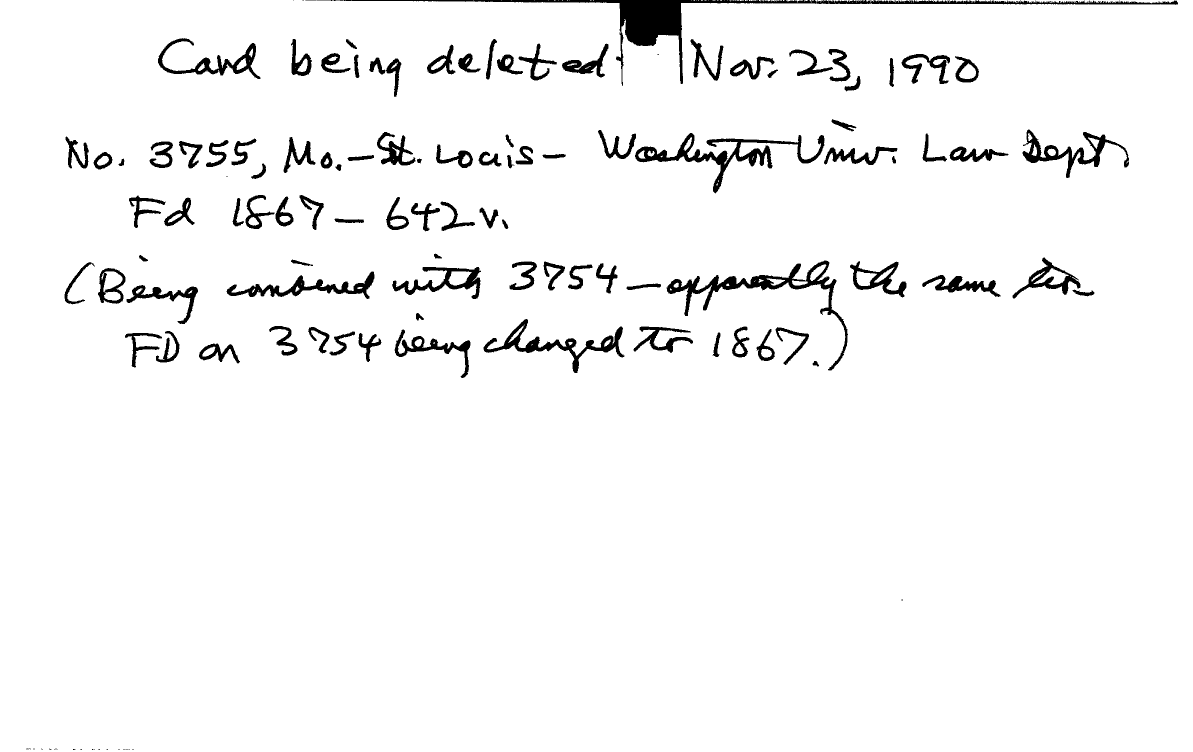 Card being deleted. Nov. 23, 1990
No. 3755, Mo.—St. Louis— Washington Univ. Law Dept.
Fd 1867 — 642 v.
(Being combined with 3754 — apparently the same lib.
FD on 3754 being changed to 1867.)